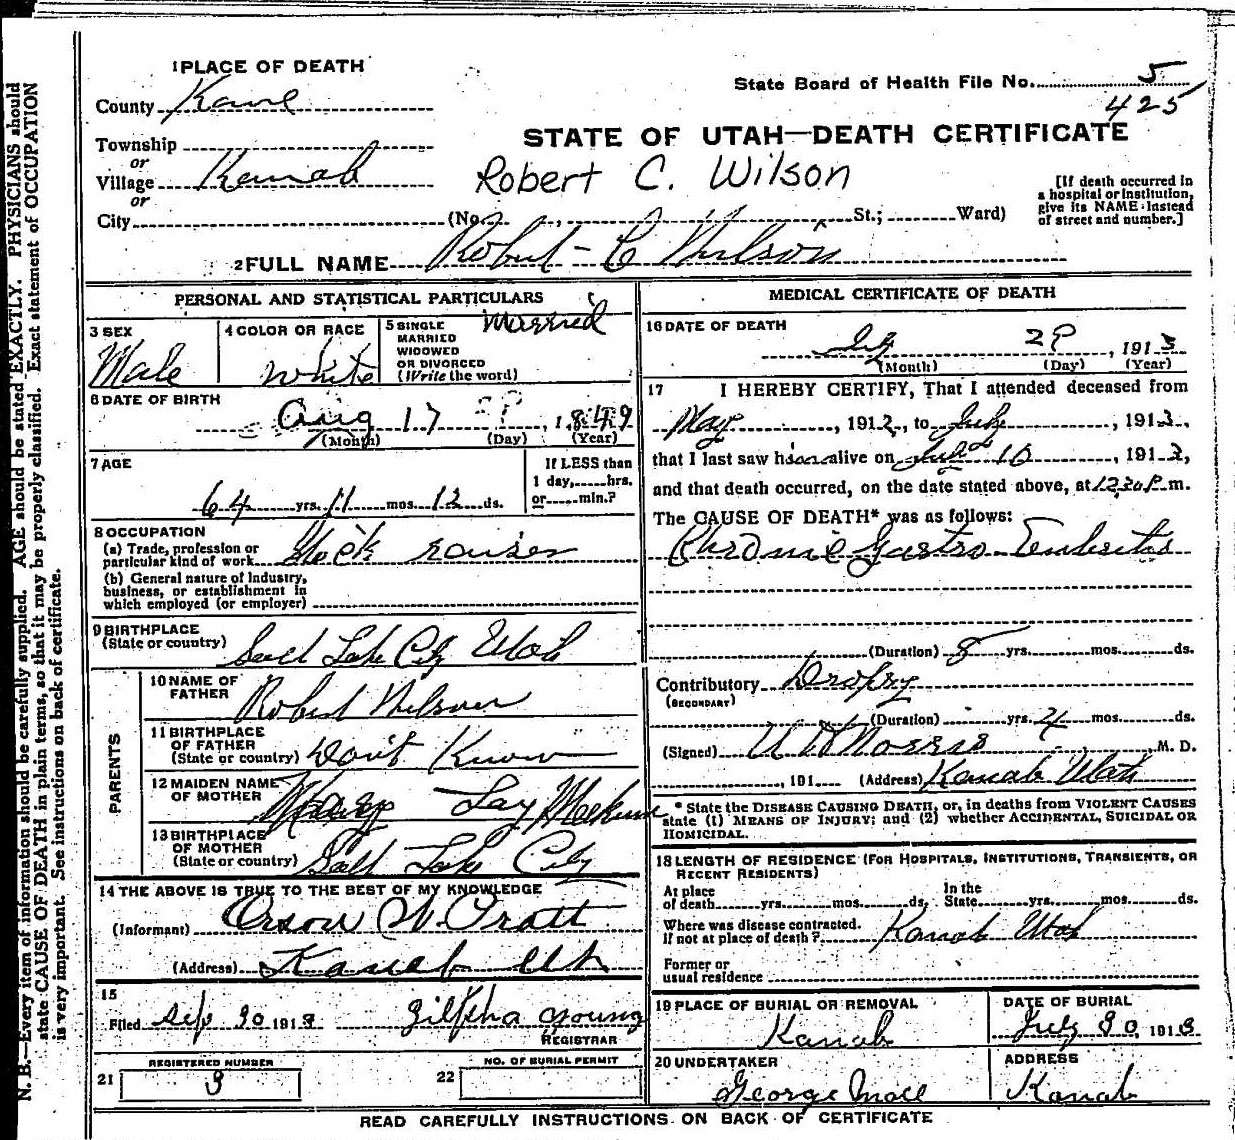 1 PLACE OF DEATH
State Board of Health File No. 5
425
County Kane
STATE OF UTAH—DEATH CERTIFICATE
Township
or
Village Kanab
Robert C. Wilson
or
City (No. , St.; Ward)
[If death occurred in
a hospital or institution,
give its NAME instead
of street and number.]
2 FULL NAME Robert C Wilson
PERSONAL AND STATISTICAL PARTICULARS
3 SEX
Male
4 COLOR OR RACE
White
5 SINGLE
MARRIED
WIDOWED
OR DIVORCED
(Write the word)
Married
6 DATE OF BIRTH
Aug 17, 1849
(Month) (Day) (Year)
7 AGE
64 yrs. 11 mos. 12 ds.
If LESS than
1 day, hrs.
or min.?
8 OCCUPATION
(a) Trade, profession or
particular kind of work Stock raiser
(b) General nature of Industry,
business, or establishment in
which employed (or employer)
9 BIRTHPLACE
(State or country) Salt Lake City Utah
PARENTS
10 NAME OF
FATHER Robert Wilson
11 BIRTHPLACE
OF FATHER
(State or country) Don't Know
12 MAIDEN NAME
OF MOTHER Mary
13 BIRTHPLACE
OF MOTHER
(State or country) Salt Lake City
14 THE ABOVE IS TRUE TO THE BEST OF MY KNOWLEDGE
(Informant) Orson W Pratt
(Address) Kanab Utah
15
Filed Sep 30 1913 Zilpha Young
REGISTRAR
REGISTERED NUMBER
21 3
NO. OF BURIAL PERMIT
22
MEDICAL CERTIFICATE OF DEATH
16 DATE OF DEATH
July 29, 1913
(Month) (Day) (Year)
17 I HEREBY CERTIFY, That I attended deceased from
May , 1912, to July , 1913,
that I last saw him alive on July 10 , 1913,
and that death occurred, on the date stated above, at 12.30 P m.
The CAUSE OF DEATH* was as follows:
Chronic Gastro Enteritis
(Duration) 8 yrs. mos. ds.
Contributory Dropsy
(SECONDARY)
(Duration) yrs. 4 mos. ds.
(Signed) Norris , M. D.
, 191 (Address) Kanab Utah
* State the DISEASE CAUSING DEATH, or, in deaths from VIOLENT CAUSES
state (1) MEANS OF INJURY; and (2) whether ACCIDENTAL, SUICIDAL OR
HOMICIDAL.
18 LENGTH OF RESIDENCE (FOR HOSPITALS, INSTITUTIONS, TRANSIENTS, OR
RECENT RESIDENTS)
At place
of death yrs. mos. ds.
In the
State yrs. mos. ds.
Where was disease contracted.
If not at place of death? Kanab Utah
Former or
usual residence
19 PLACE OF BURIAL OR REMOVAL
Kanab
DATE OF BURIAL
July 30, 1913
20 UNDERTAKER
George Mace
ADDRESS
Kanab
READ CAREFULLY INSTRUCTIONS ON BACK OF CERTIFICATE
N. B.—Every item of information should be carefully supplied. AGE should be stated EXACTLY. PHYSICIANS should
state CAUSE OF DEATH in plain terms, so that it may be properly classified. Exact statement of OCCUPATION
is very important. See instructions on back of certificate.